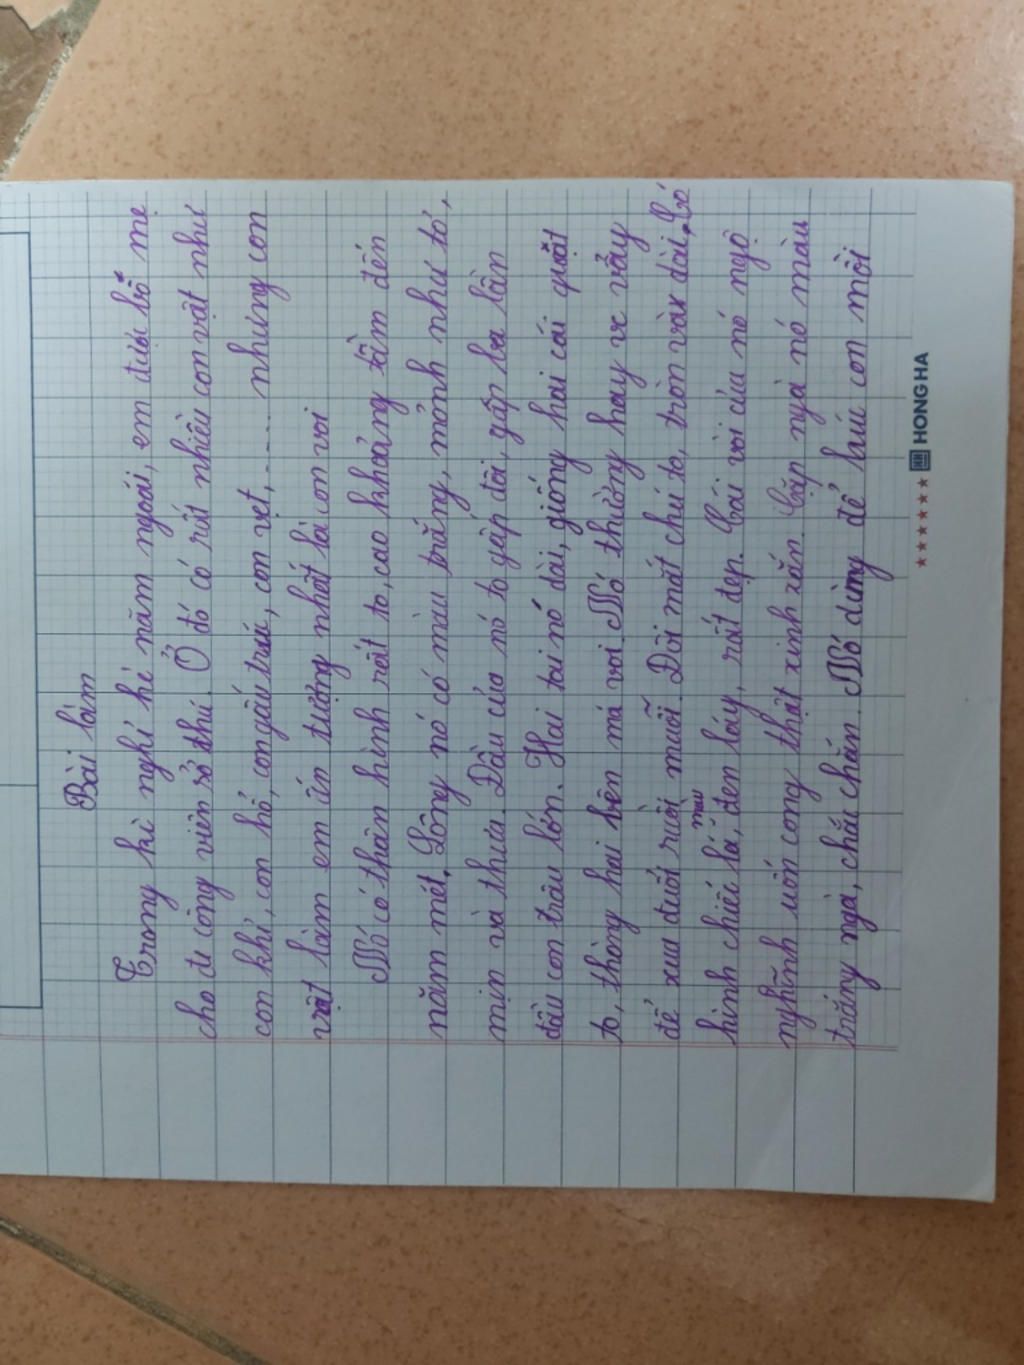 Bài làm
Trong kì nghỉ hè năm ngoái, em được bố mẹ
cho đi công viên sở thú. Ở đó có rất nhiều con vật như
con khỉ, con hổ, con gấu trúc, con vẹt,...... nhưng con
vật làm em ấn tượng nhất là con voi
Nó có thân hình rất to, cao khoảng tầm đến
năm mét. Lông nó có màu trắng, mỏnh như tơ,
mịn và thưa. Đầu của nó to gấp đôi, gấp ba lần
đầu con trâu lớn. Hai tai nó dài, giống hai cái quạt
to, thòng hai bên má voi. Nó thường hay ve vẩy
để xua đuổi ruồi muỗi. Đôi mắt chú to, tròn và dài, có
hình chiếc lá, màu đen láy, rất đẹp. Cái vòi của nó ngộ
nghĩnh uốn cong thật xinh xắn. Cặp ngà nó màu
trắng ngà, chắc chắn. Nó dùng để húc con mồi
HONG HA